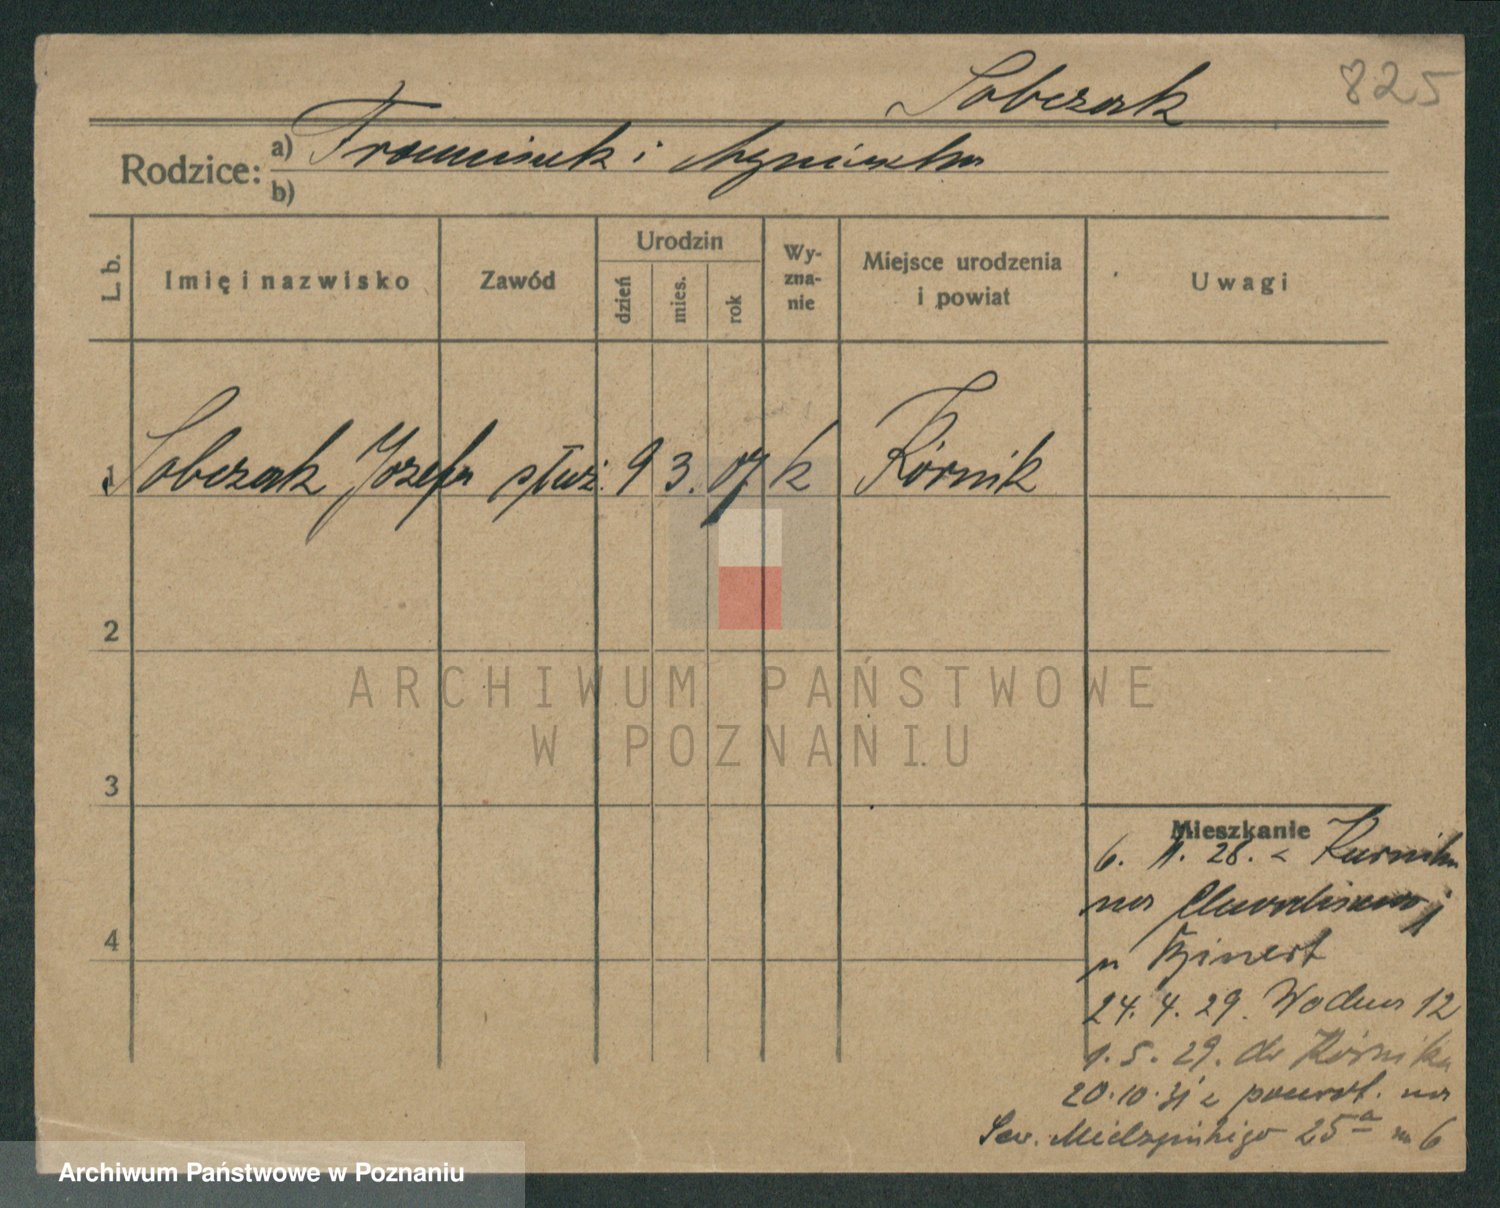 825
Sobczak
Rodzice: a) Franciszek i Agnieszka
b)
L. b.
Imię i nazwisko
Zawód
Urodzin
dzień
mies.
rok
Wy-
zna-
nie
Miejsce urodzenia
i powiat
Uwagi
1 Sobczak Józefa służ. 9 3. 07 k Kórnik
2
3
4
ARCHIWUM PAŃSTWOWE
W POZNANIU
Mieszkanie
6. 11. 28. z Kurnika
na
u
24. 4. 29. Wodna 12
1. 5. 29. do Kórnika
20.10.31 z powrot. na
Sew. Mielżyńskiego 25a m 6
Archiwum Państwowe w Poznaniu